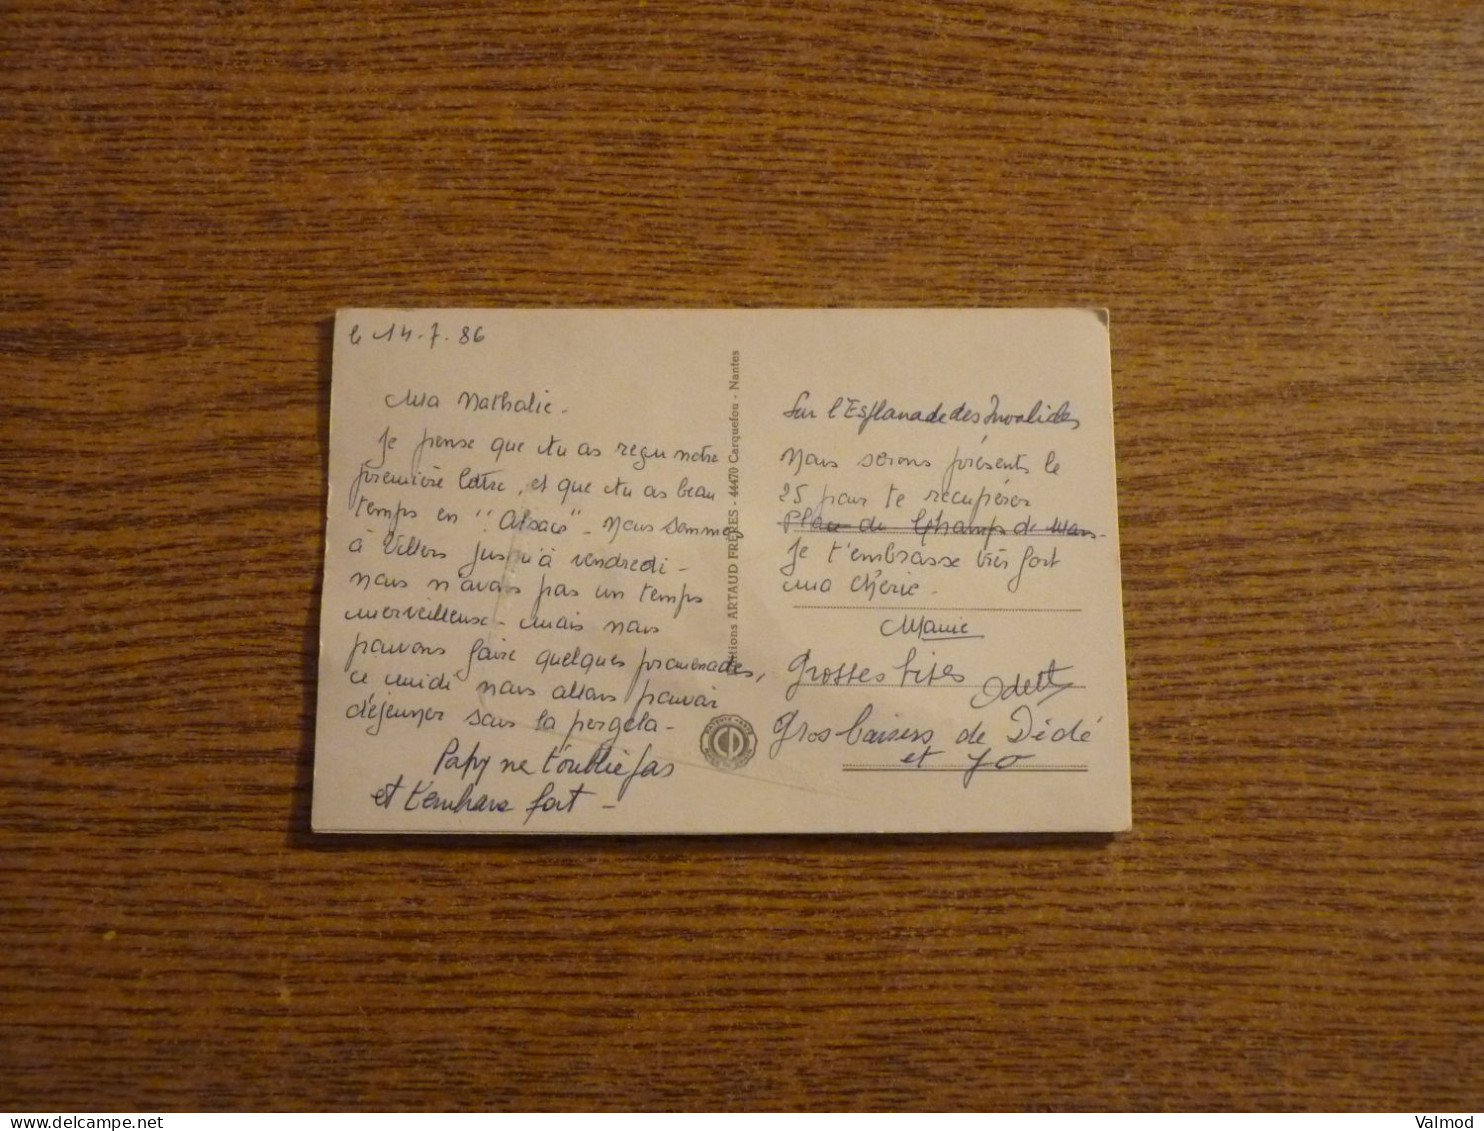 le 14.7.86
Ma Nathalie -
Je pense que tu as reçu notre
première lettre, et que tu as beau
temps en "Alsace" - Nous sommes
à Villers jusqu'à vendredi -
nous n'avons pas un temps
merveilleux - mais nous
pouvons faire quelques promenades,
ce midi nous allons pouvoir
déjeuner sous la pergola -
Papy ne t'oublie pas
et t'embrasse fort -
Editions ARTAUD FRÈRES - 44470 Carquefou - Nantes
Sur l'Esplanade des Invalides
Nous serons présents le
25 pour te récupérer
Place du Champ de Mars -
Je t'embrasse très fort
ma chérie -
Mamie
Grosses bises
Odette
Gros baisers de Dédé
et Jo
Valmod